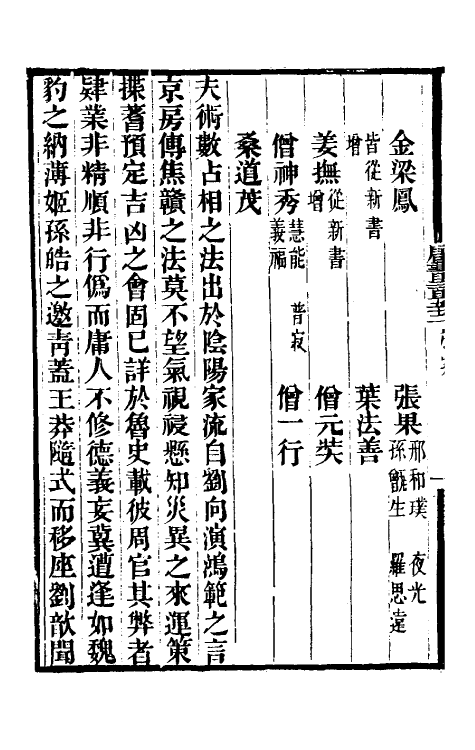 金梁鳳　張果 邢和璞　夜光 孫甑生　羅思遠
皆從新書增　葉法善
姜撫 從新書增　僧元奘
僧神秀 慧能　普寂 義福　僧一行
桑道茂
夫術數占相之法出於陰陽家流自劉向演鴻範之言
京房傳焦贛之法莫不望氣視祲懸知災異之來運策
揲蓍預定吉凶之會固已詳於魯史載彼周官其弊者
肄業非精順非行僞而庸人不修德義妄冀遭逢如魏
豹之納薄姬孫皓之邀靑蓋王莽隨式而移座劉歆聞